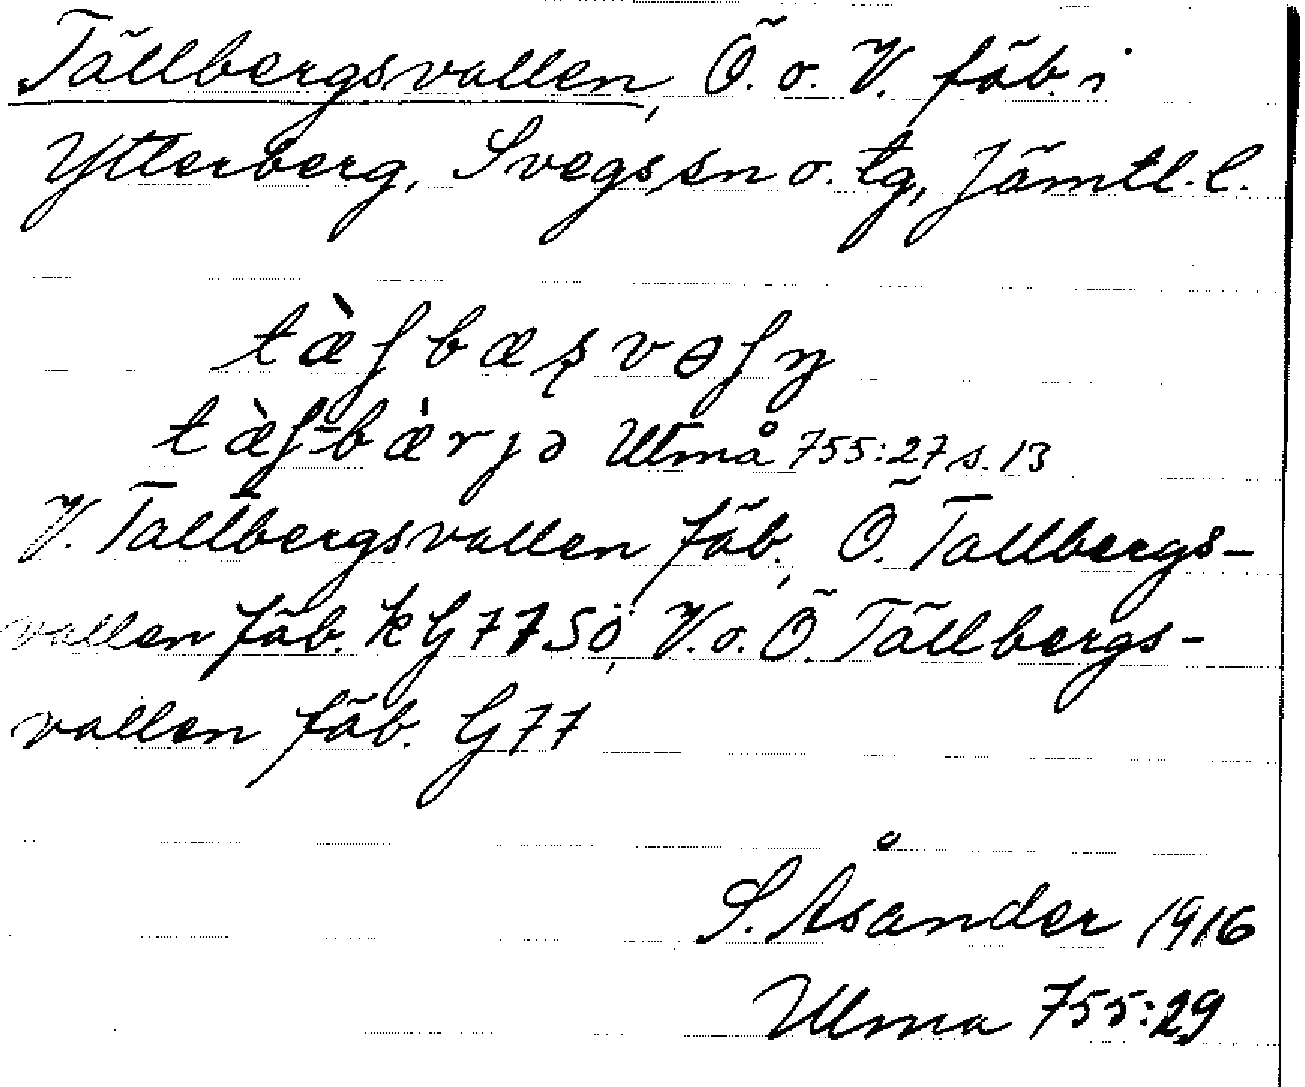 Tällbergsvallen, Ö. o. V. fäb. i
Ytterberg, Svegs sn o. tg, Jämtl. l.
V. Tallbergsvallen fäb., Ö. Tallbergs-
vallen fäb. k G77SÖ, V. o. Ö. Tällbergs-
vallen fäb. G77
S. Åsander 1916
Ulma 755:29